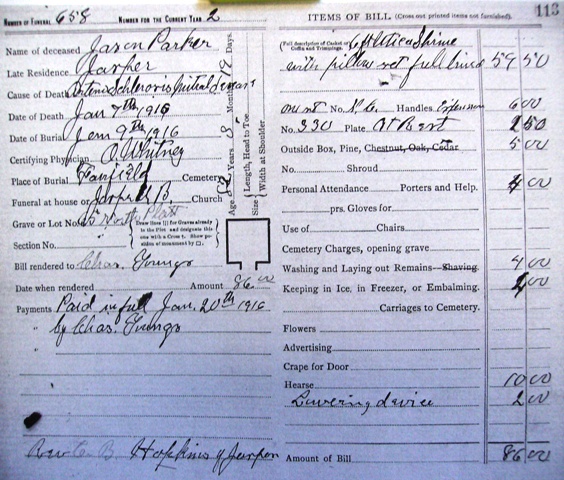 NUMBER OF FUNERAL 658 NUMBER FOR THE CURRENT YEAR 2
Name of deceased Jason Parker
Late Residence Jasper
Cause of Death
Date of Death Jan 7th 1916
Date of Burial Jan 9th 1916
Certifying Physician O. Whitney
Place of Burial Fairfield Cemetery
Funeral at house or Church
Grave or Lot No.
(Draw lines [|] for Graves already in the Plot and designate this one with a Cross †. Show position of monument by □.)
Section No.
Bill rendered to Chas. Youngs
Date when rendered Amount 86 00
Payments Paid in full Jan. 20th 1916
" by Chas. Youngs
"
Rev C. B. Hopkins of Jasper
Age 82 Years 8 Months 19 Days.
Size { Length, Head to Toe
Width at Shoulder
113
ITEMS OF BILL (Cross out printed items not furnished).
(Full description of Casket or Coffin and Trimmings.)
with pillow set full lined 59 50
Handles Extension 6 00
No. 330 Plate At Rest 50
Outside Box, Pine, Chestnut, Oak, Cedar 5 00
No. Shroud
Personal Attendance Porters and Help. 00
prs. Gloves for
Use of Chairs
Cemetery Charges, opening grave
Washing and Laying out Remains—Shaving. 4 00
Keeping in Ice, in Freezer, or Embalming. 00
Carriages to Cemetery.
Flowers
Advertising
Crape for Door
Hearse 10 00
Lowering device 2 00
Amount of Bill 86 00